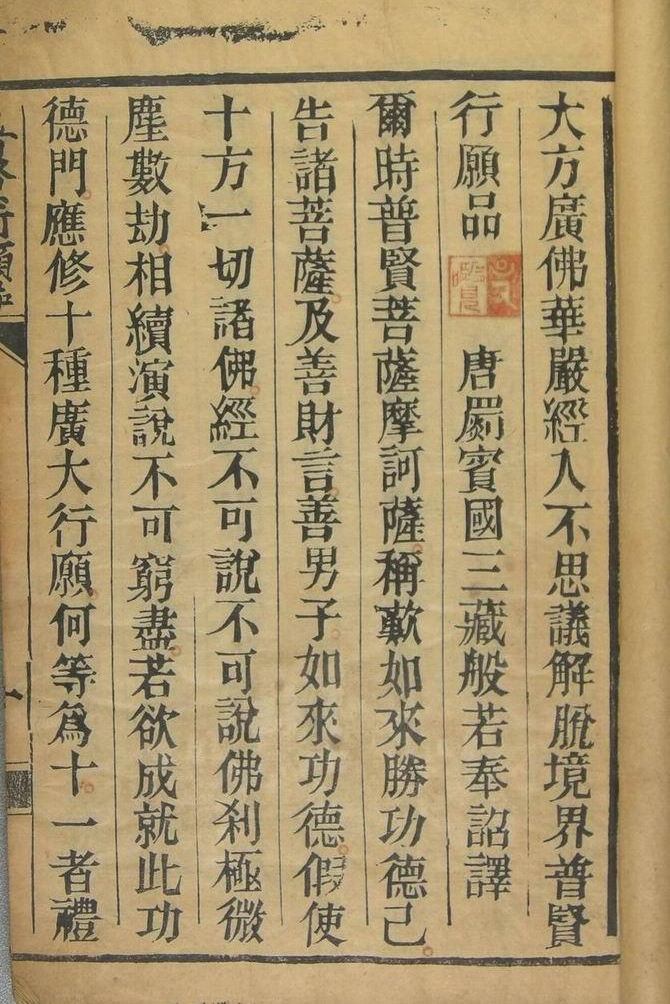 大方廣佛華嚴經入不思議解脫境界普賢
行願品 唐罽賓國三藏般若奉詔譯
爾時普賢菩薩摩訶薩稱歎如來勝功德已
告諸菩薩及善財言善男子如來功德假使
十方一切諸佛經不可說不可說佛刹極微
塵數劫相續演說不可窮盡若欲成就此功
德門應修十種廣大行願何等爲十一者禮